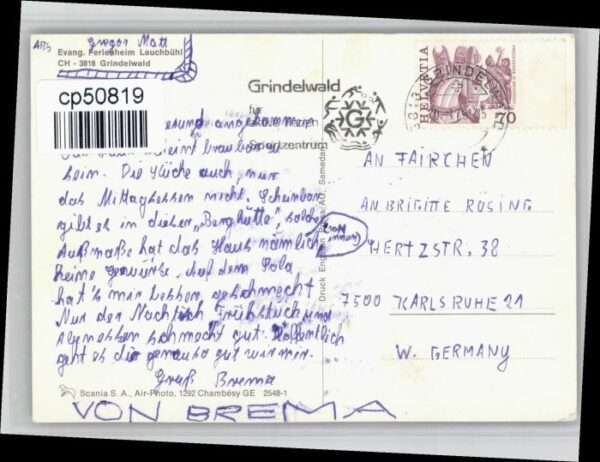 ABS Gregor Matt
Evang. Ferienheim Lauchbühl
CH - 3818 Grindelwald
cp50819
Grindelwald
Ferien
Sportzentrum
HELVETIA
70
gesund angekommen
sein. Die Küche auch, nur
das Mittagsessen nicht. Scheinbar
gibt es in dieser „Berghütte", solche
Außmaße hat das Haus nämlich
keine Gewürze. Auf dem Pola
hat's mir besser geschmeckt
Nur der Nachtisch Frühstück und
Abendessen schmeckt gut. Hoffentlich
geht es dir genauso gut wie mir.
Gruß Brema
VON BREMA
AN FAIRCHEN
AN BRIGITTE RÖSING
HERTZSTR. 38
7500 KARLSRUHE 21
W. GERMANY
Scania S. A., Air-Photo, 1292 Chambésy GE 2548-1